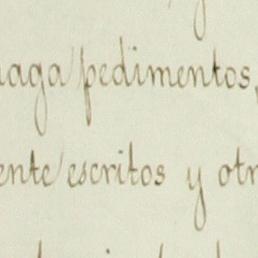 haga pedimentos,
ente escritos y otr